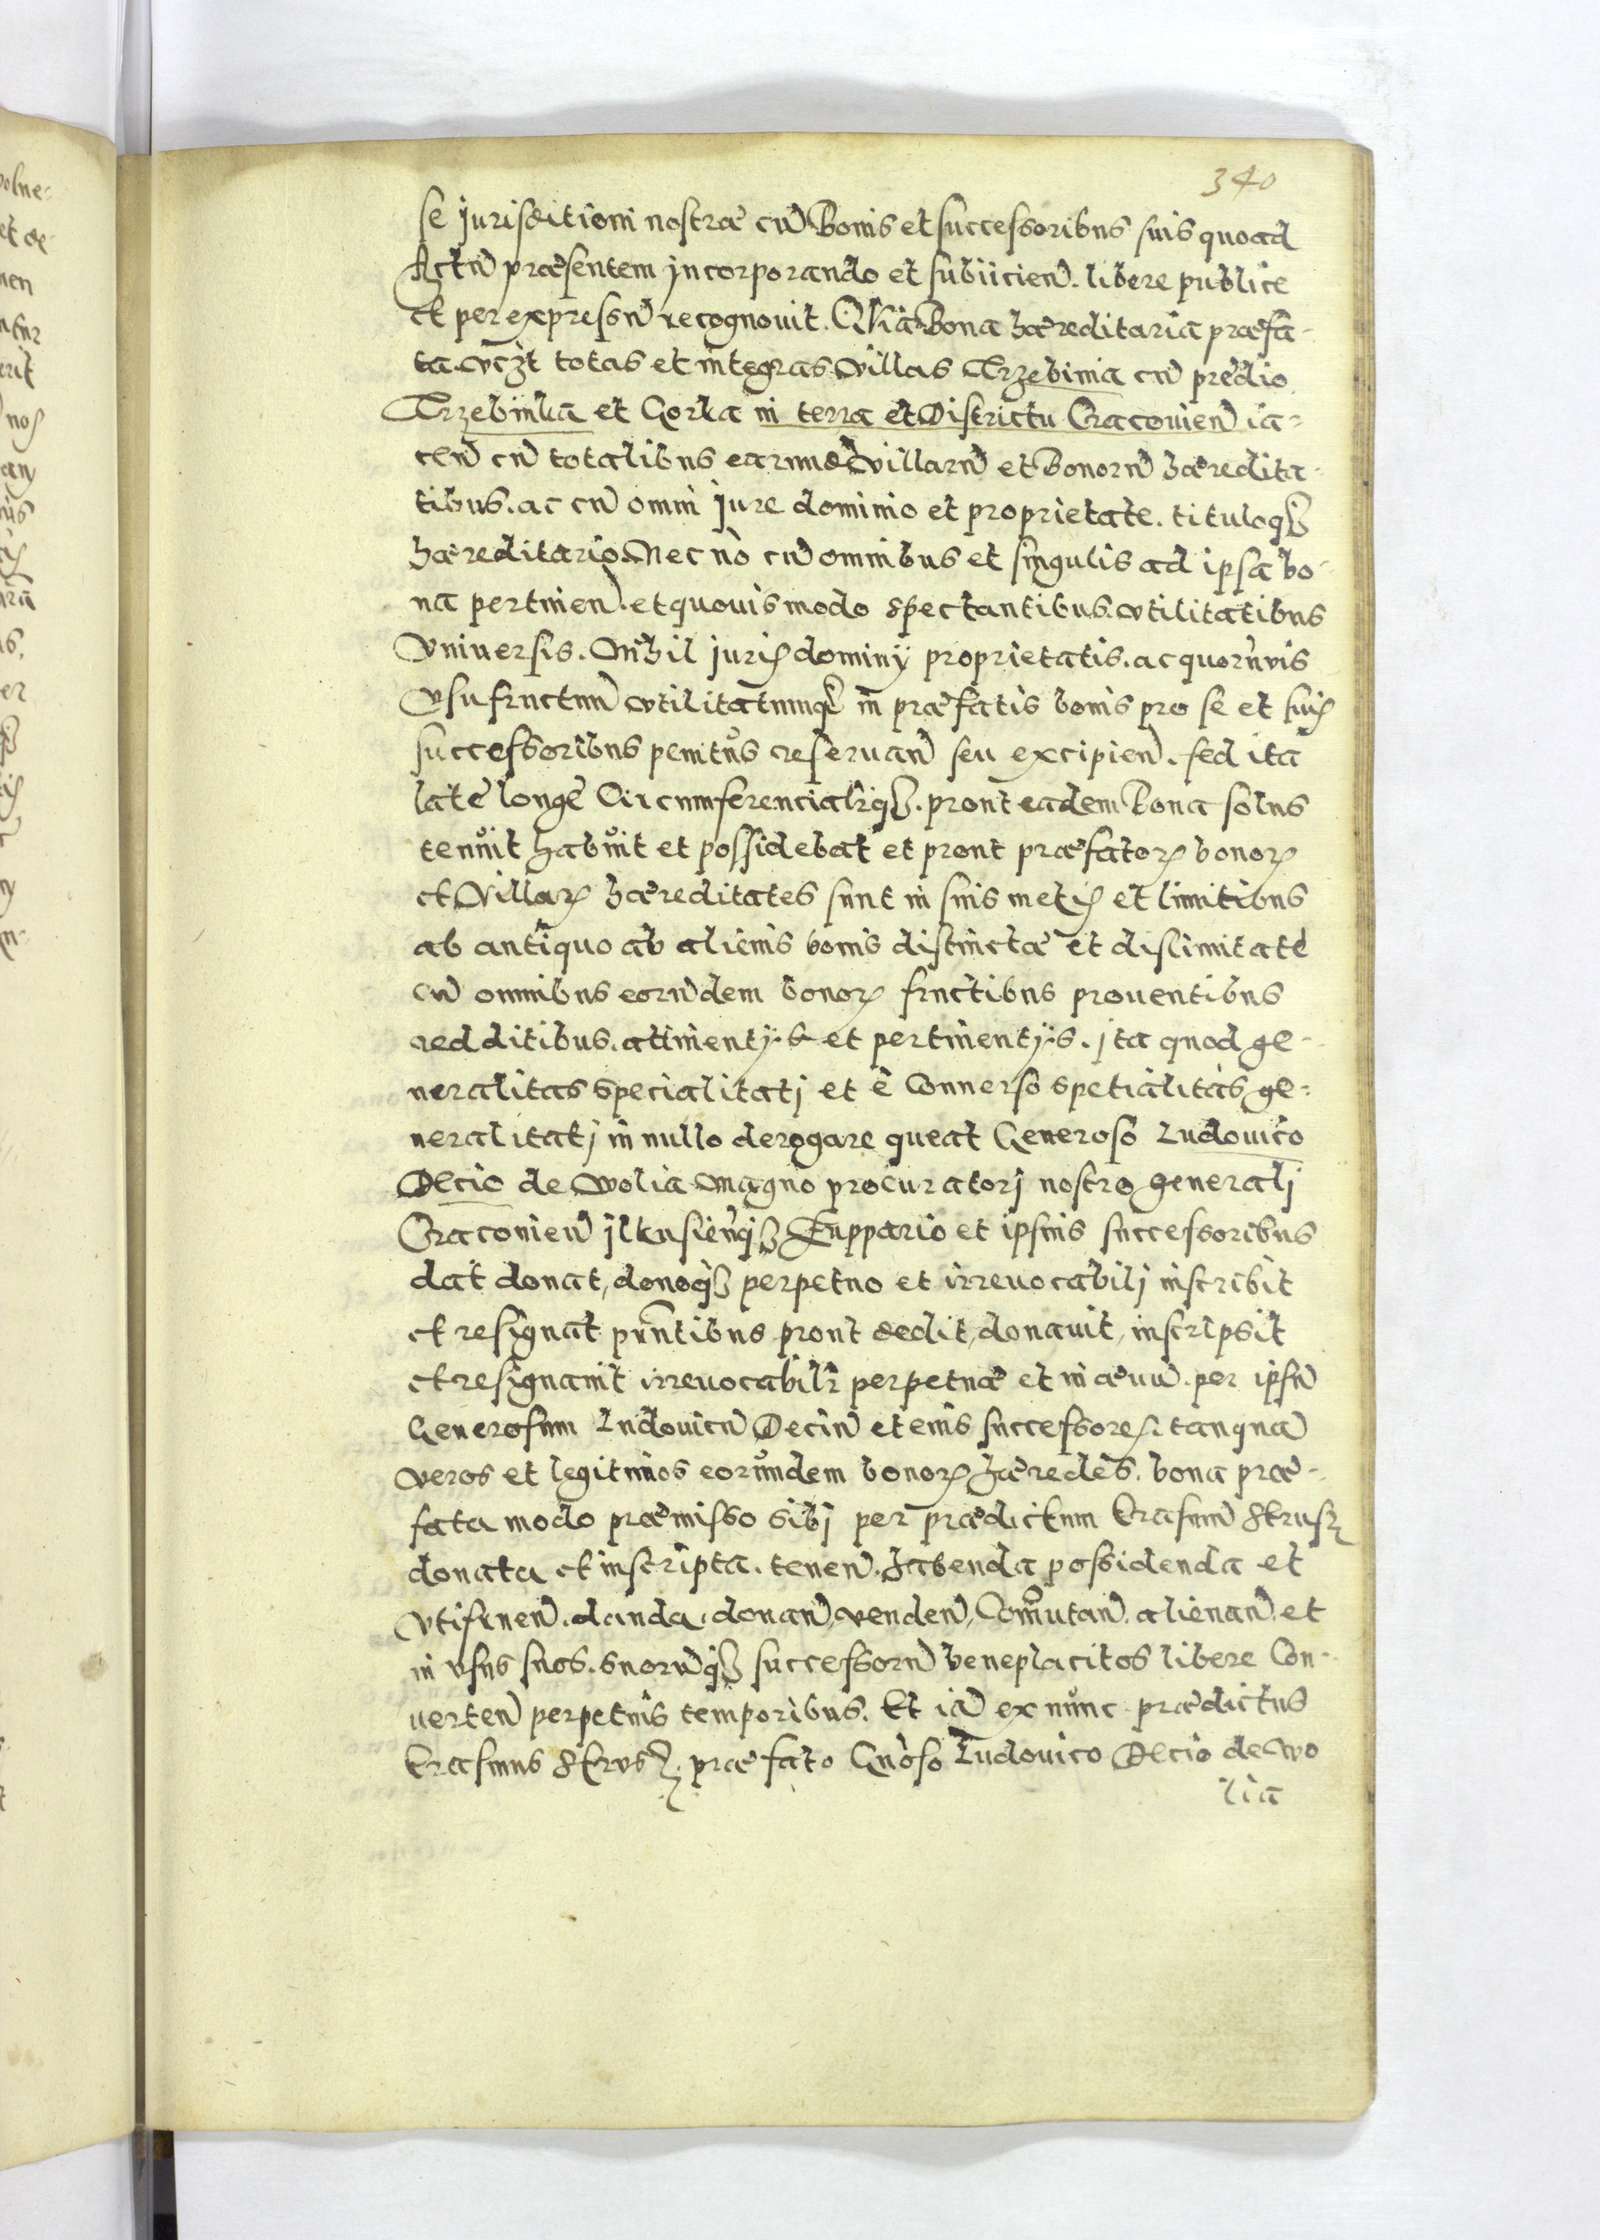 340
se jurisditioni nostræ cū Bonis et successoribus suis quoad
Actū præsentem jncorporando et subiicien̄. libere publice
et per expressū recognovit. Quia Bona hæreditaria præfa-
ta. vcz̄t totas et integras villas Trzebinia cū prędio
Trzebinka et Gorka in terra et Districtu Cracovien̄ ia-
cen̄ cū totalibus earumdē villarū et Bonorū hæredita-
tibus. ac cū omni jure dominio et proprietate. tituloqȝ
hæreditario. Nec nō cū omnibus et singulis ad ipsa bo-
na pertinen̄. et quouis modo spectantibus. vtilitatibus
Vniuersis. Nihil juris dominij proprietatis. ac quorūvis
Vsufructuū vtilitatumqȝ in præfatis bonis pro se et suis
successoribus penitus reseruan̄ seu excipien̄. sed ita
latè longè Circumferencialiqȝ. prout eadem Bona solus
tenuit habuit et possidebat et prout præfatoꝝ bonoꝝ
et Villaꝝ hæreditates sunt in suis metis et limitibus
ab antiquo ab alienis bonis distinctæ et dislimitatę
cū omnibus eorūdem bonoꝝ fructibus prouentibus
redditibus. attinentijs et pertinentijs. jta quod ge-
neralitas specialitatj et è Conuerso spetialitas ge-
neralitatj in nullo derogare queat Generoso Ludouico
Decio de Wolia Magno procuratorj nostro generalj
Cracouien̄ jlkusien̄qȝ Zuppario et ipsius successoribus
dat donat, donoqȝ perpetuo et irreuocabilj inscribit
et resignat pn̄tibus prout dedit, donauit, inscripsit
et resignauit irreuocabilr perpetuæ et in æuū. per ipsū
Generosum Ludouicū Deciū et eius successores. tanquā
veros et legitimos eorumdem bonoꝝ hæredes. bona præ-
fata modo præmisso sibj per prædictum Erasmū Strusz
donata et inscripta. tenen̄. habenda possidenda et
Vtifruen̄. danda, donan̄, venden̄, Com̄utan̄. alienan̄. et
in vsus suos. suorūqȝ successorū beneplacitos libere Con-
uerten̄ perpetuis temporibus. Et iā ex nunc prædictus
Erasmus Strvsz. præfato Gnōso Ludouico Decio de Wo
lia